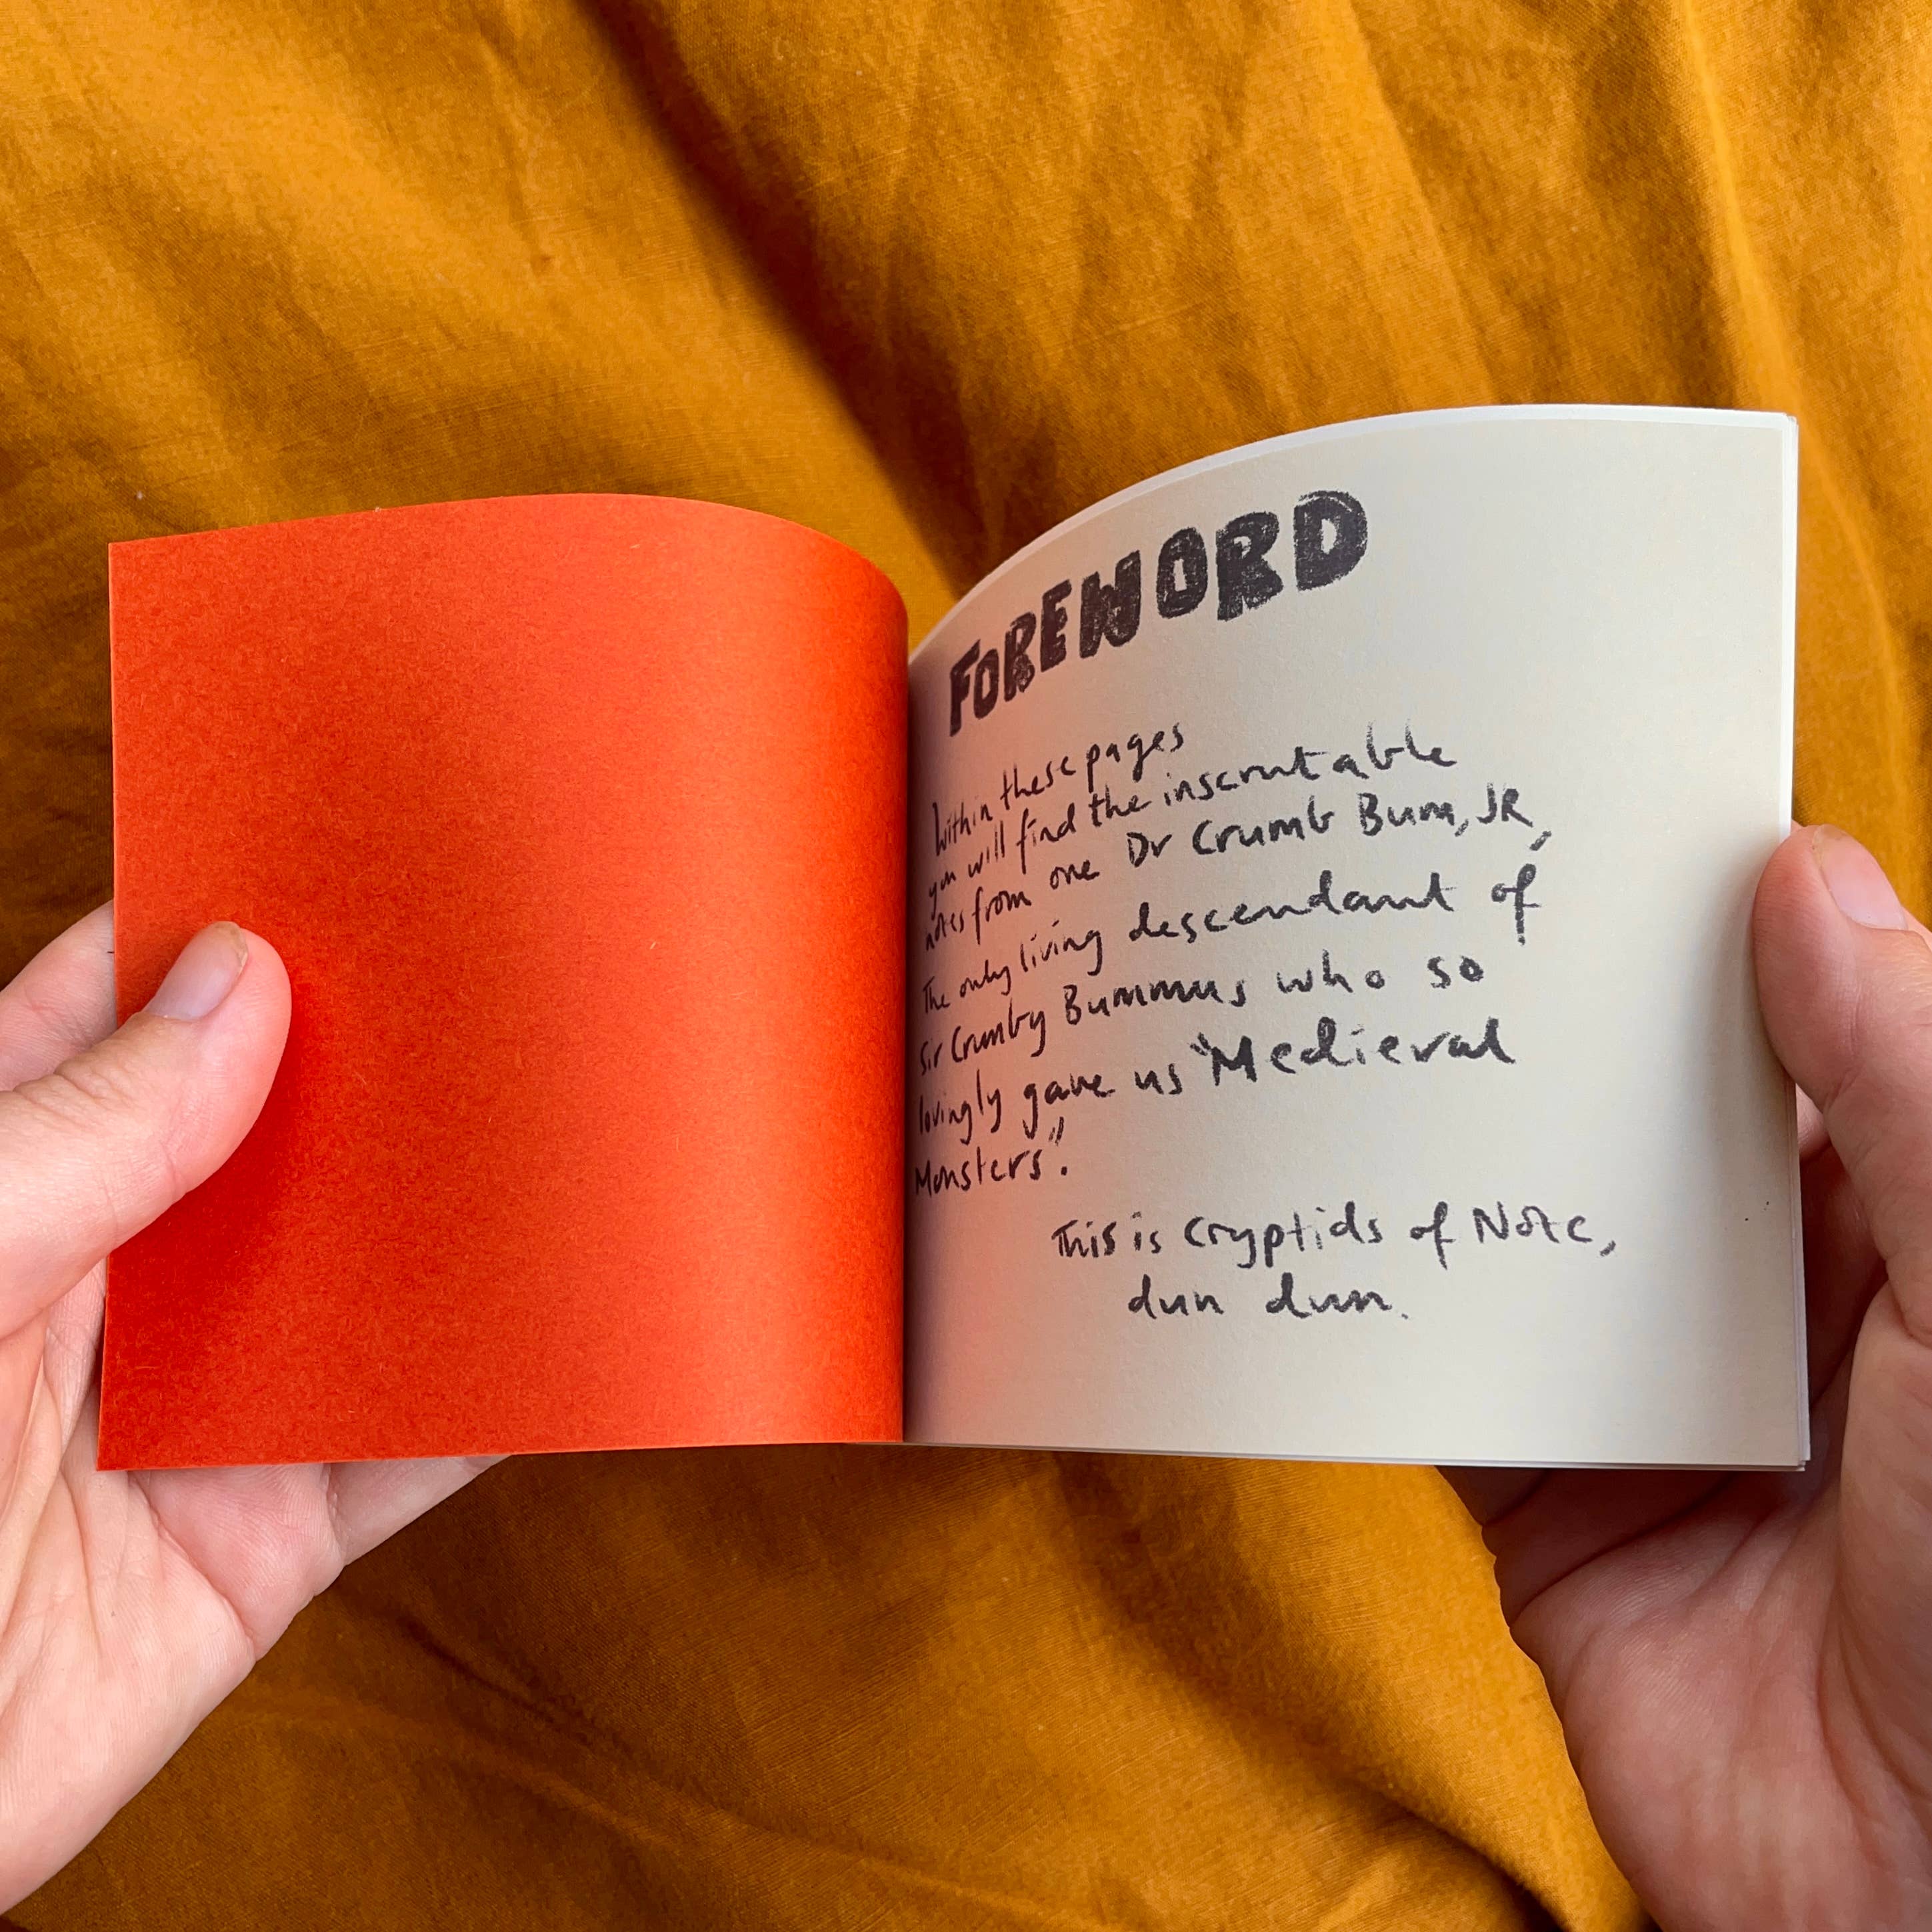 FOREWORD
Within these pages
you will find the inscrutable
notes from one Dr Crumb Bum, JR,
The only living descendant of
Sir Crumby Bummus who so
lovingly gave us "Medieval
Monsters".
This is Cryptids of Note,
dun dun.